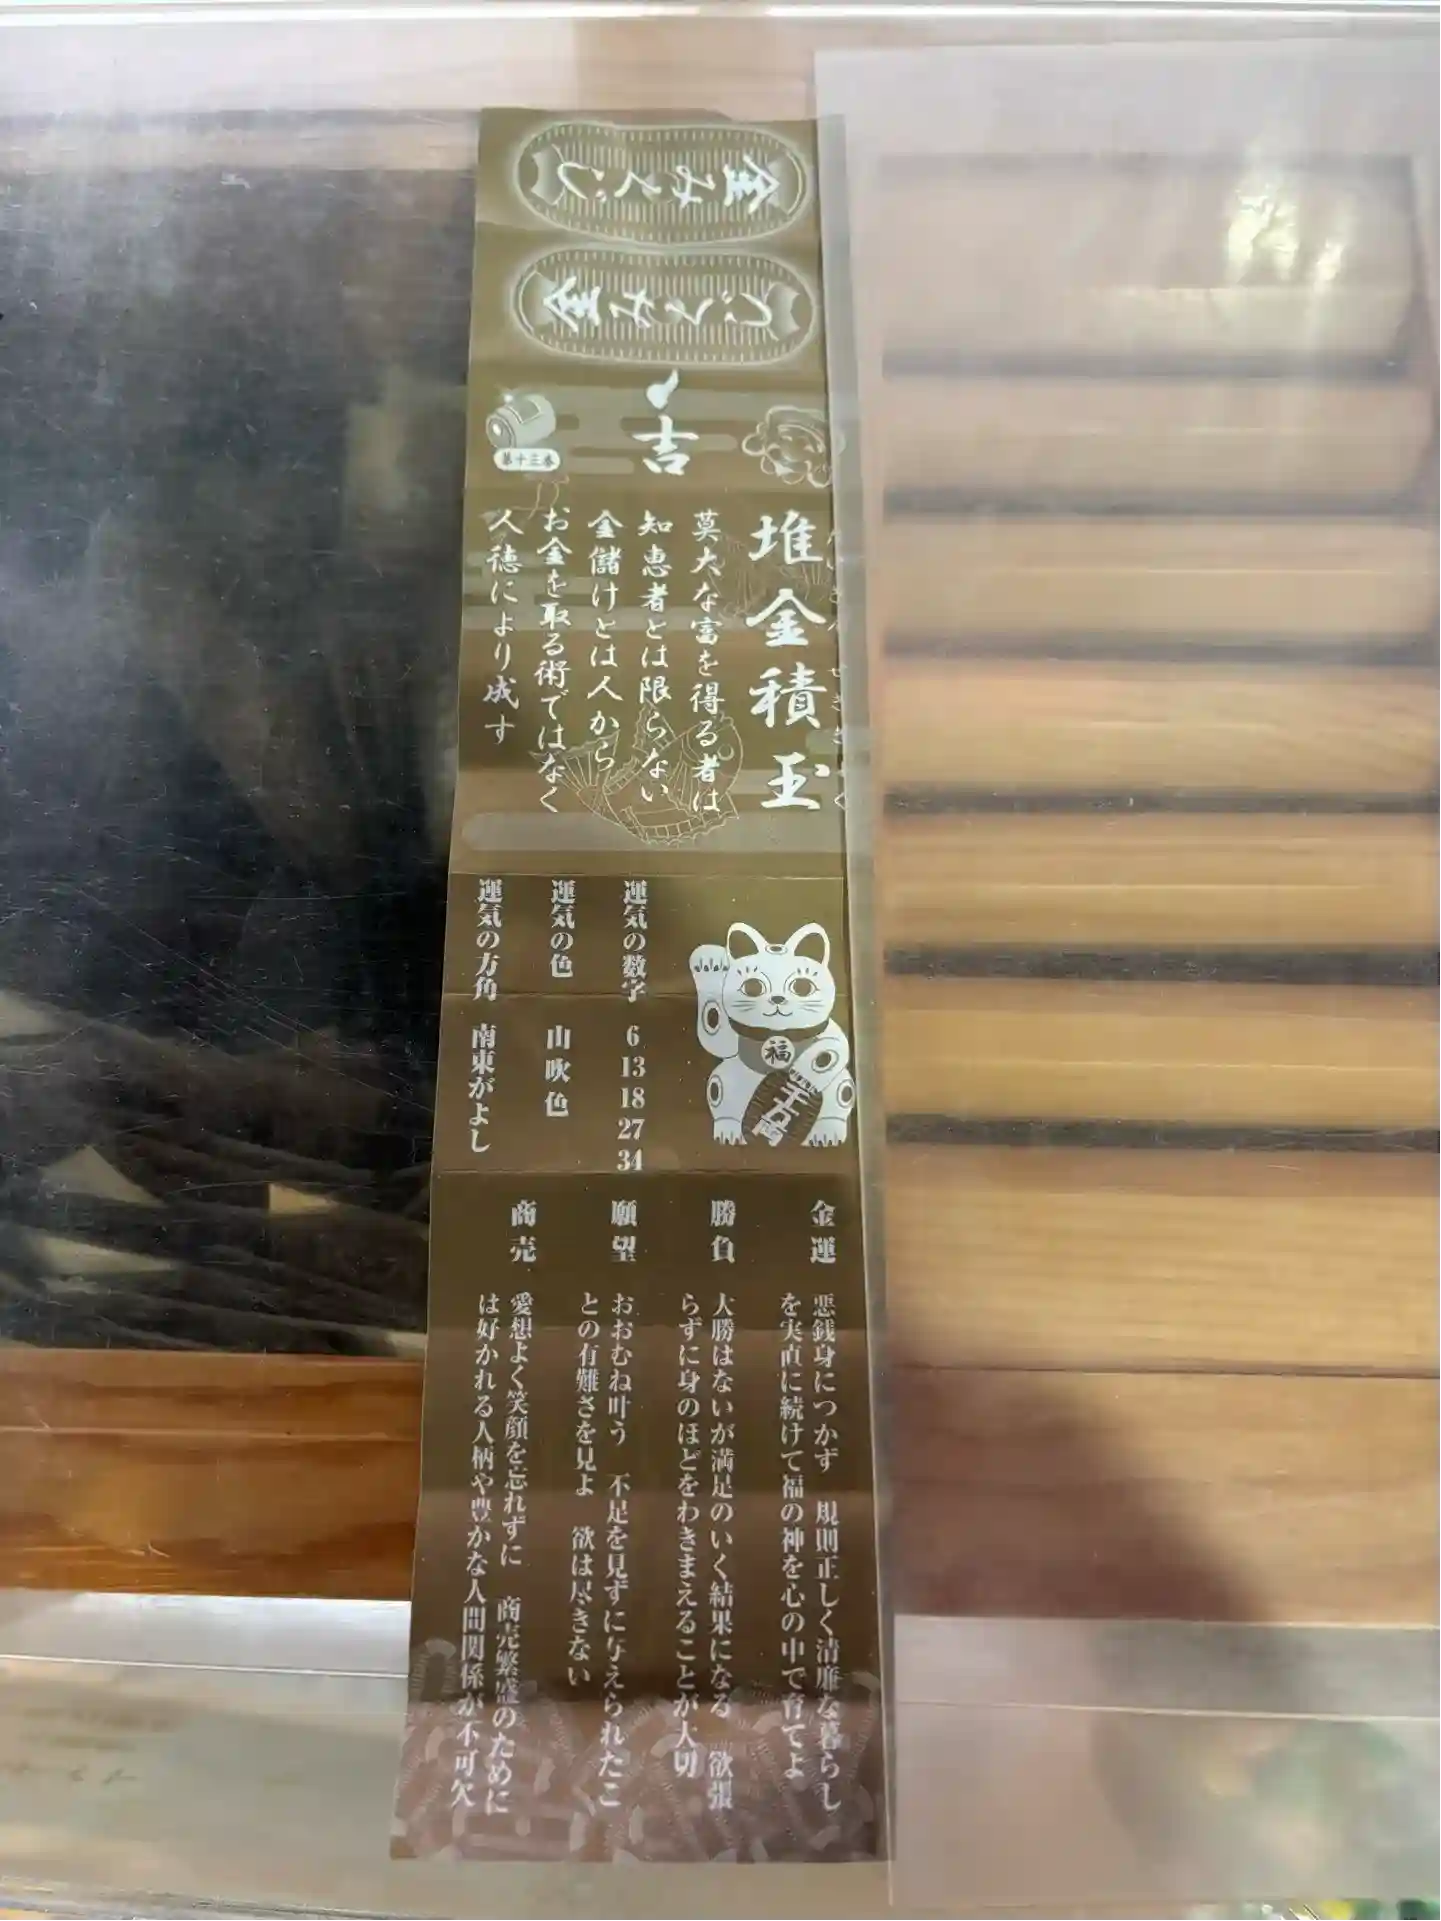 金みくじ
金みくじ
吉
第十三番
堆金積玉
莫大な富を得る者は
知恵者とは限らない
金儲けとは人から
お金を取る術ではなく
人徳により成す
福
運気の数字 6 13 18 27 34
運気の色 山吹色
運気の方角 南東がよし
金運 悪銭身につかず 規則正しく清廉な暮らし
を実直に続けて福の神を心の中で育てよ
勝負 大勝はないが満足のいく結果になる 欲張
らずに身のほどをわきまえることが大切
願望 おおむね叶う 不足を見ずに与えられたこ
との有難さを見よ 欲は尽きない
商売 愛想よく笑顔を忘れずに 商売繁盛のために
は好かれる人柄や豊かな人間関係が不可欠